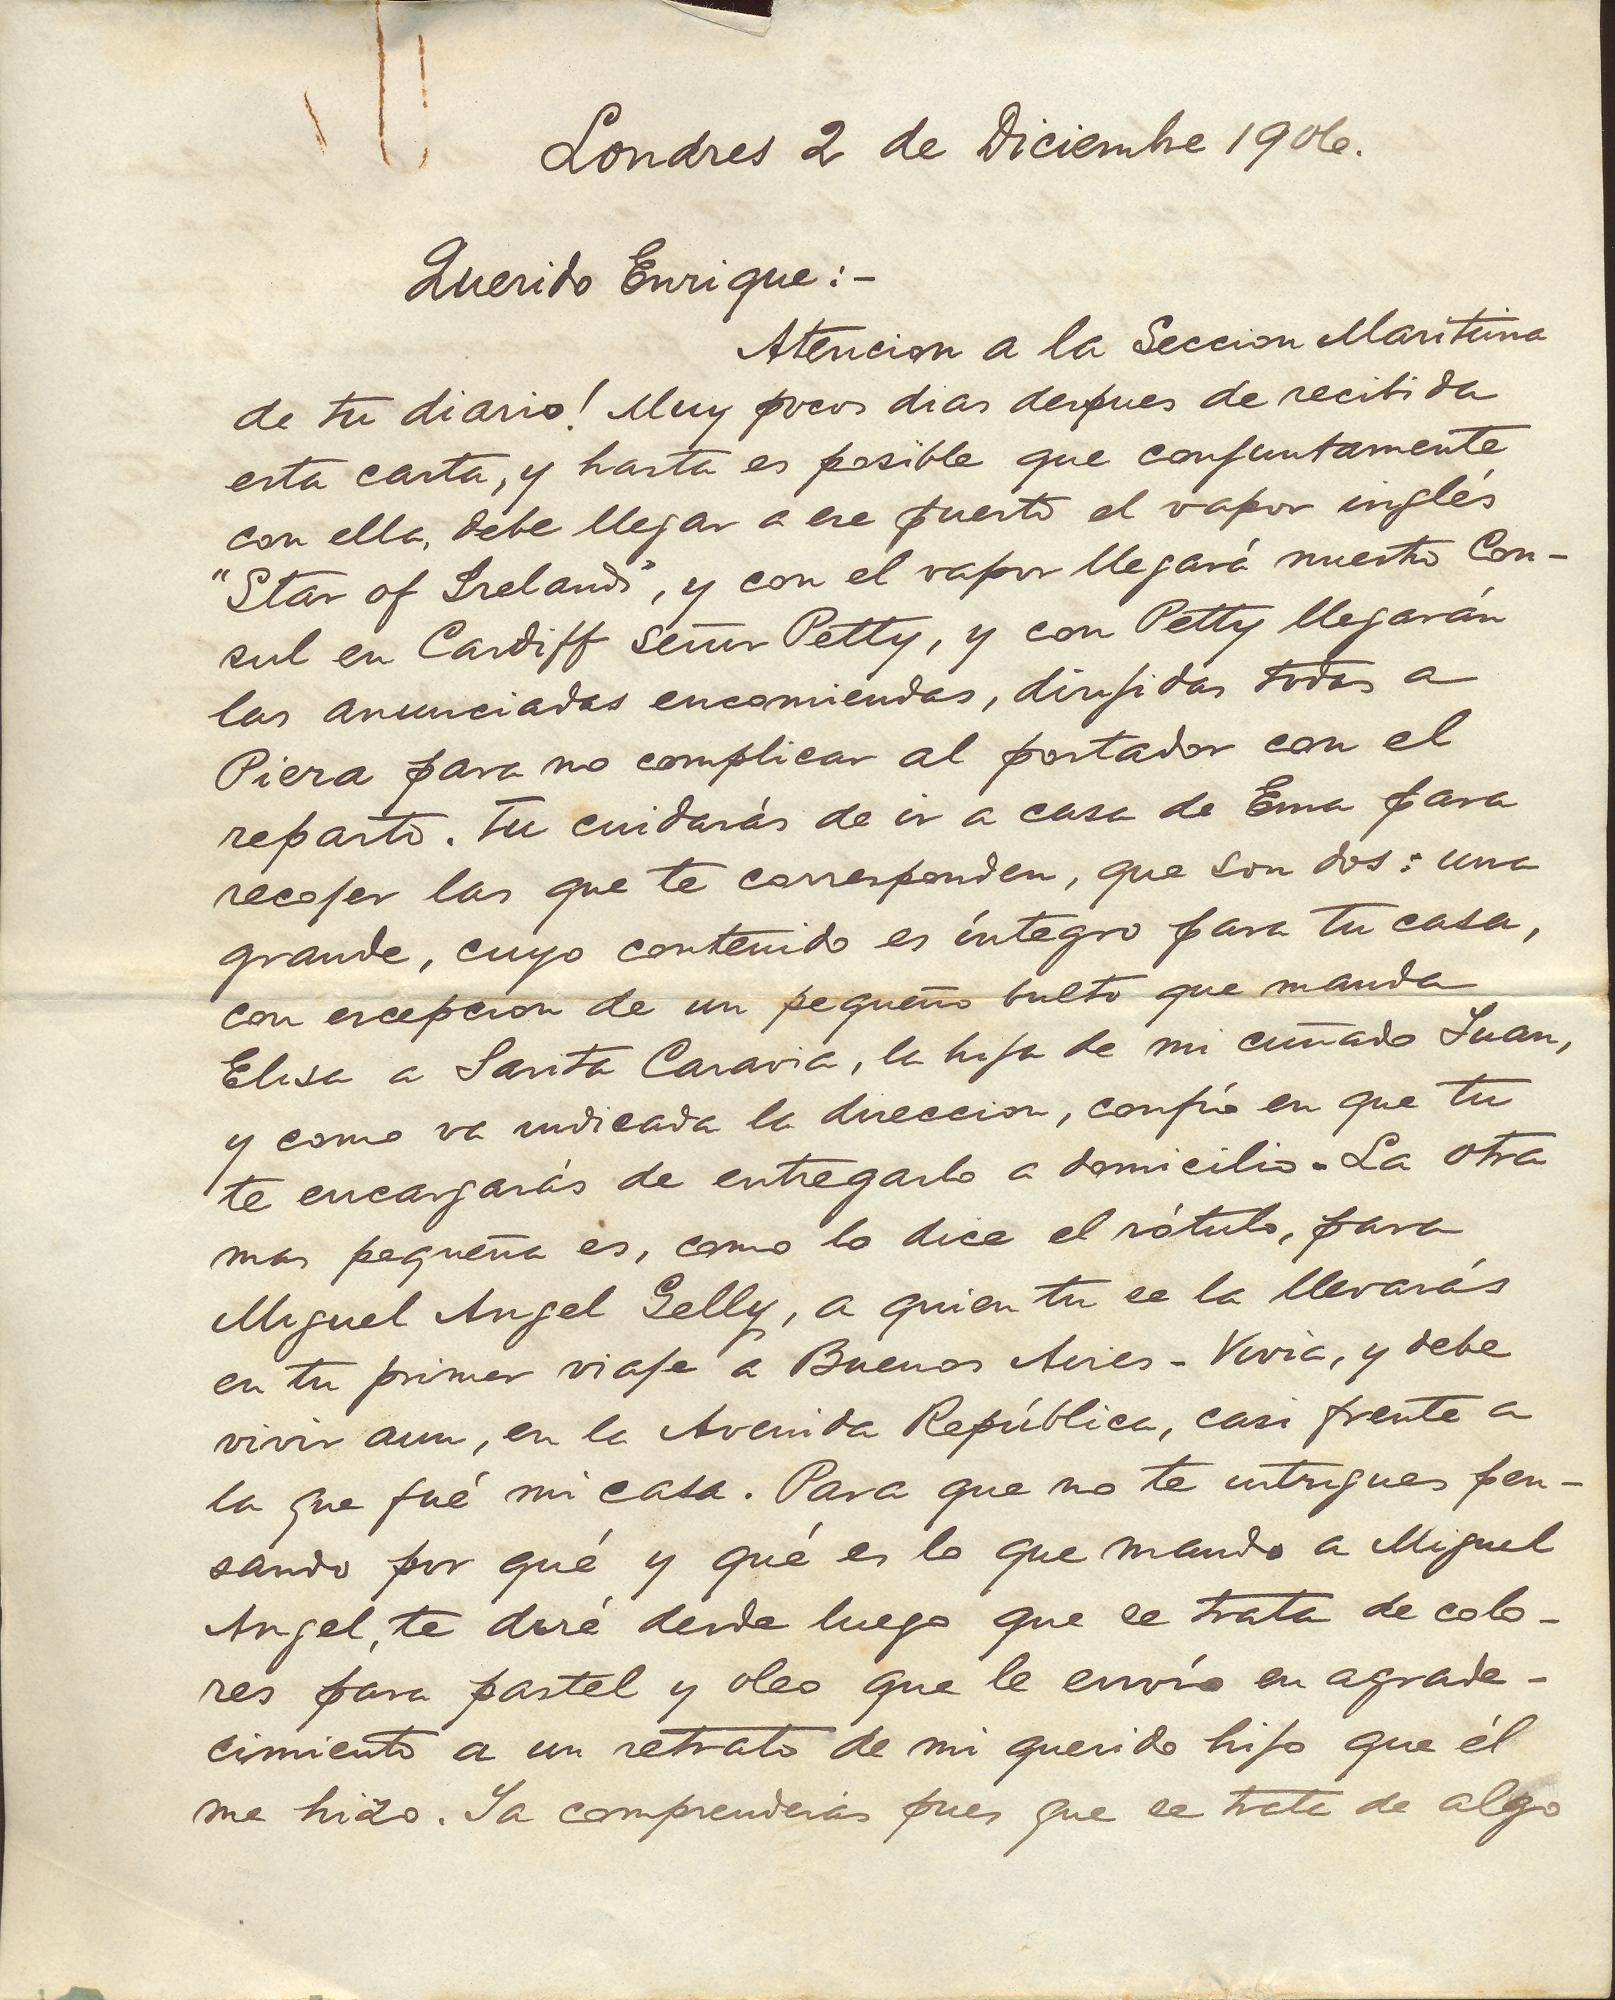 Londres 2 de Diciembre 1906.
Querido Enrique:-
Atencion a la Seccion Maritima
de tu diario! Muy pocos dias despues de recibida
esta carta, y hasta es posible que conjuntamente
con ella, debe llegar a ese puerto el vapor inglés
"Star of Ireland", y con el vapor llegará nuestro Con-
sul en Cardiff señor Petty, y con Petty llegarán
las anunciadas encomiendas, dirijidas todas a
Piera para no complicar al portador con el
reparto. Tu cuidarás de ir a casa de Ema para
recojer las que te corresponden, que son dos: una
grande, cuyo contenido es íntegro para tu casa,
con escepcion de un pequeño bulto que manda
Elisa a Sarita Caravia, la hija de mi cuñado Juan,
y como va indicada la direccion, confío en que tu
te encargarás de entregarlo a domicilio. La otra
mas pequeña es, como lo dice el rótulo, para
Miguel Angel Gelly, a quien tu se la llevarás
en tu primer viaje a Buenos Aires - Vivia, y debe
vivir aun, en la Avenida República, casi frente a
la que fué mi casa. Para que no te intrigues pen-
sando por qué y qué es lo que mando a Miguel
Angel, te diré desde luego que se trata de colo-
res para pastel y oleo que le envío en agrade-
cimiento a un retrato de mi querido hijo que él
me hizo. Ya comprenderás pues que se trata de algo